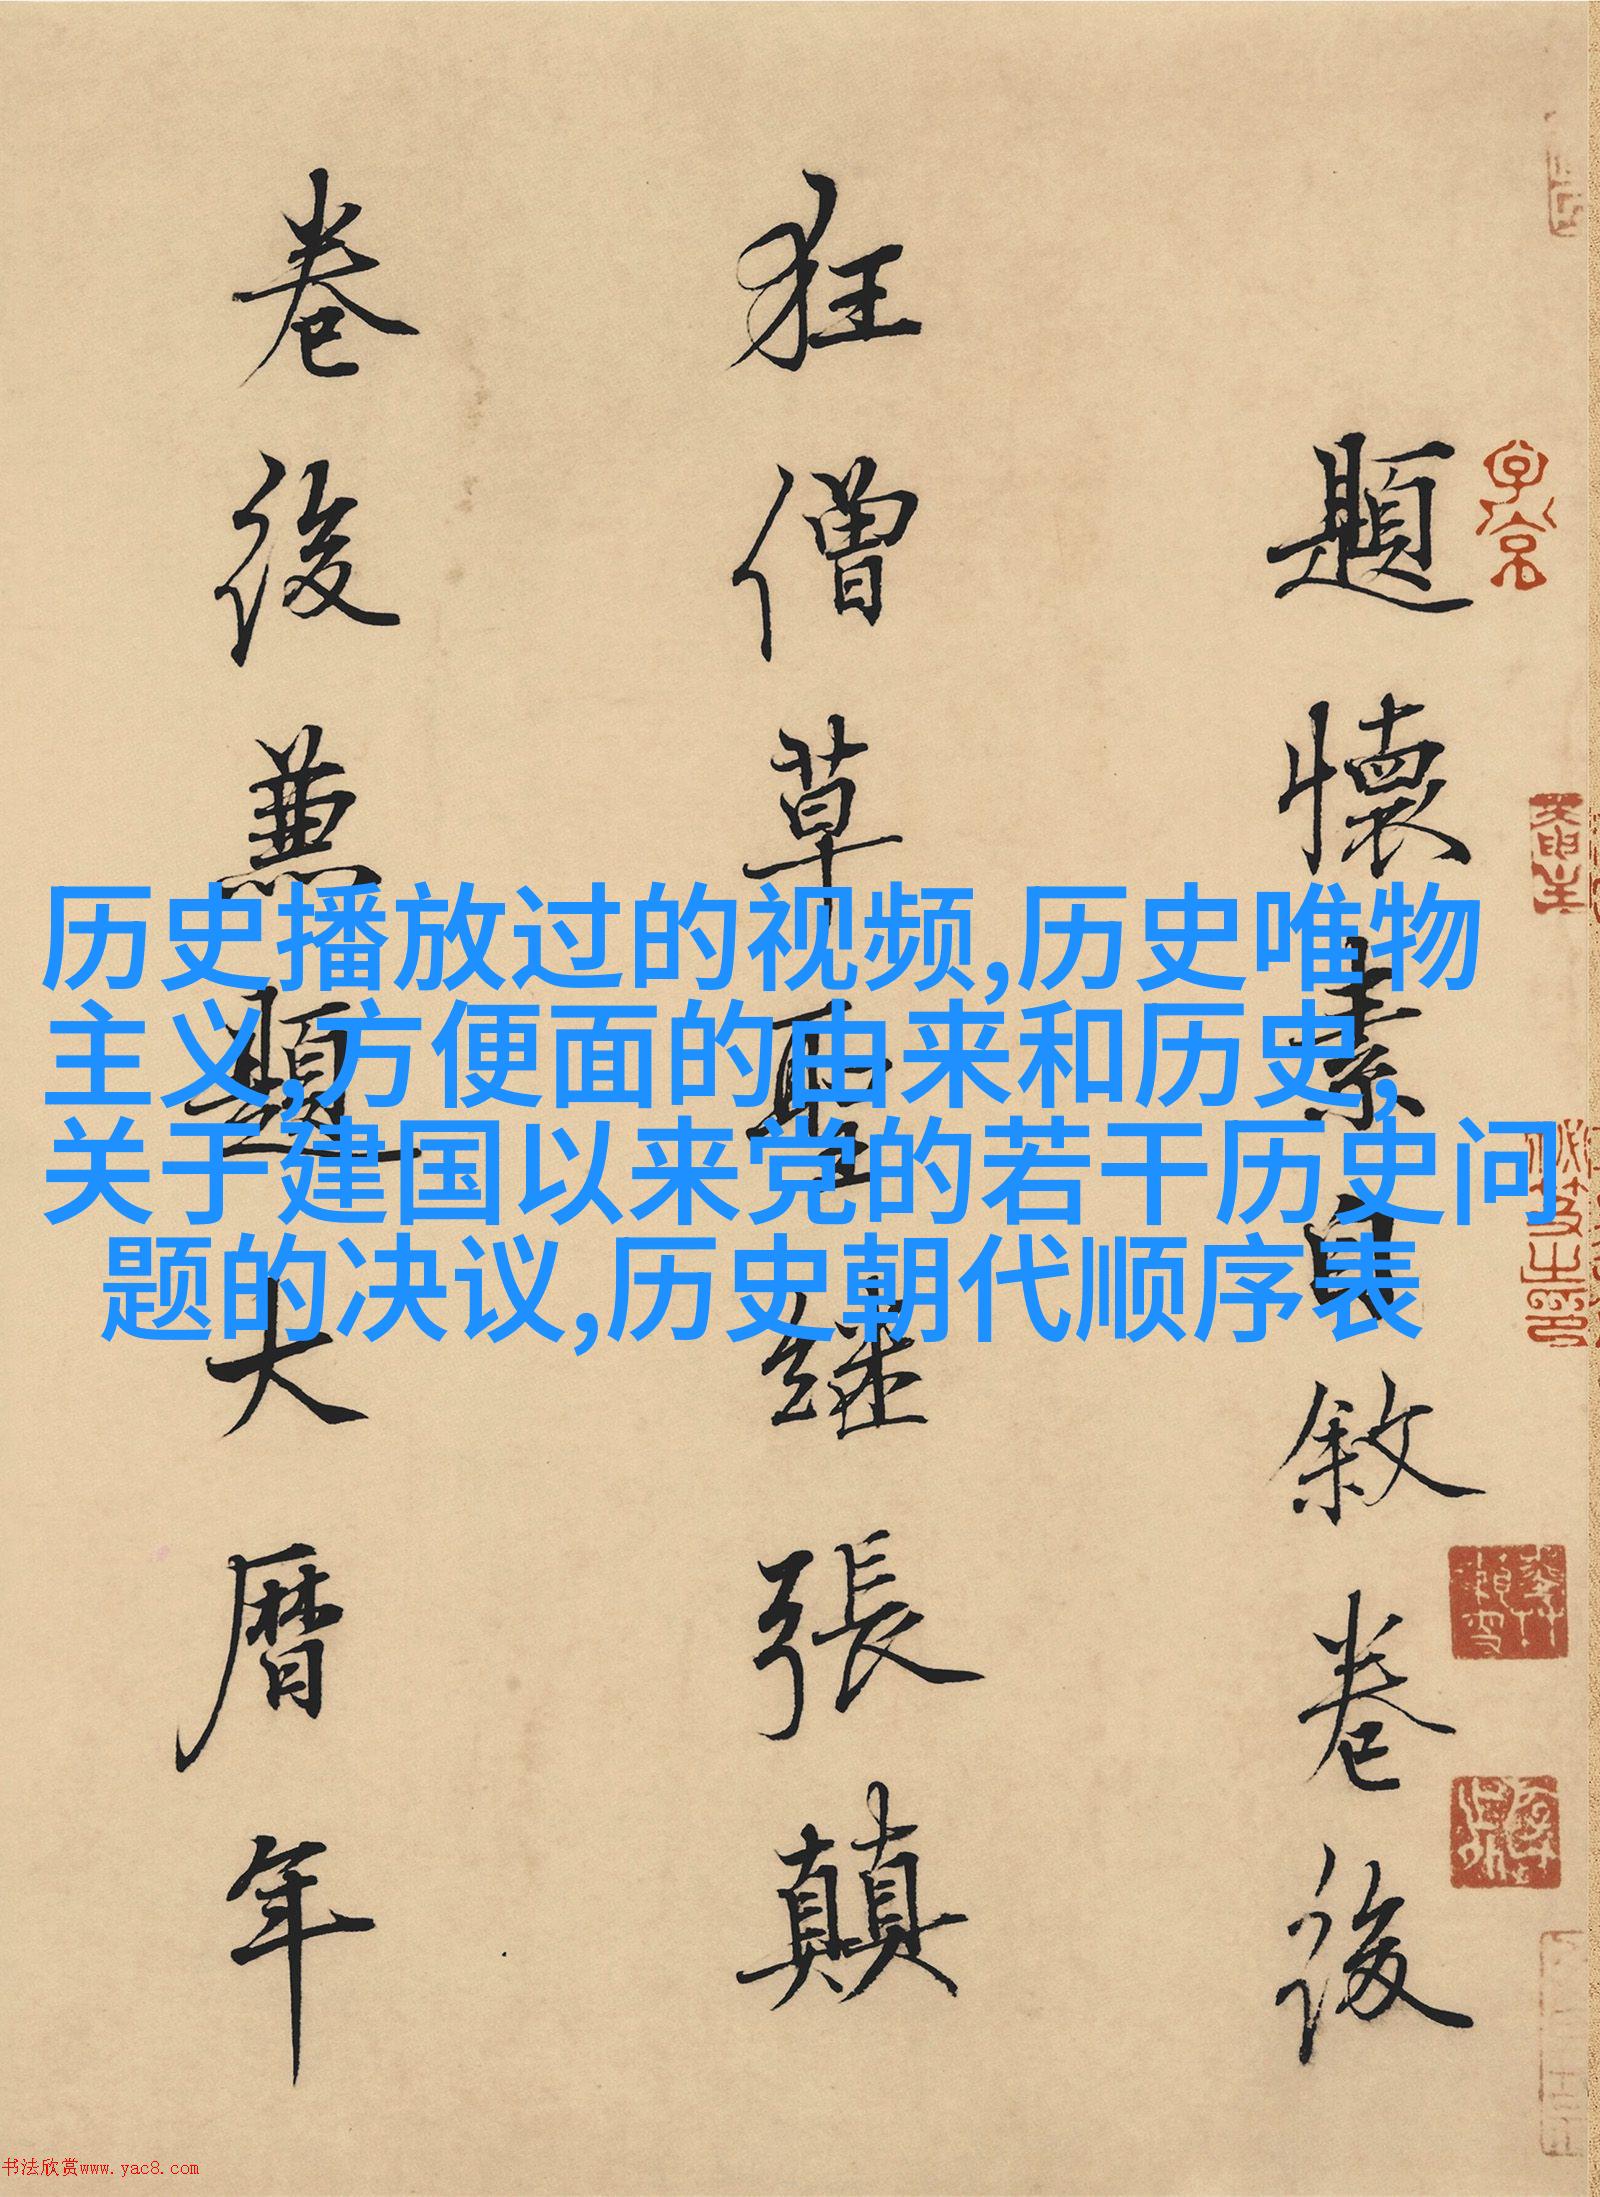 題懷素自敘卷後
狂僧草聖继張顛
卷後兼題大曆年
历史播放过的视频,历史唯物
主义,方便面的由来和历史,
关于建国以来党的若干历史问
题的决议,历史朝代顺序表
书法欣赏www.yac8.com